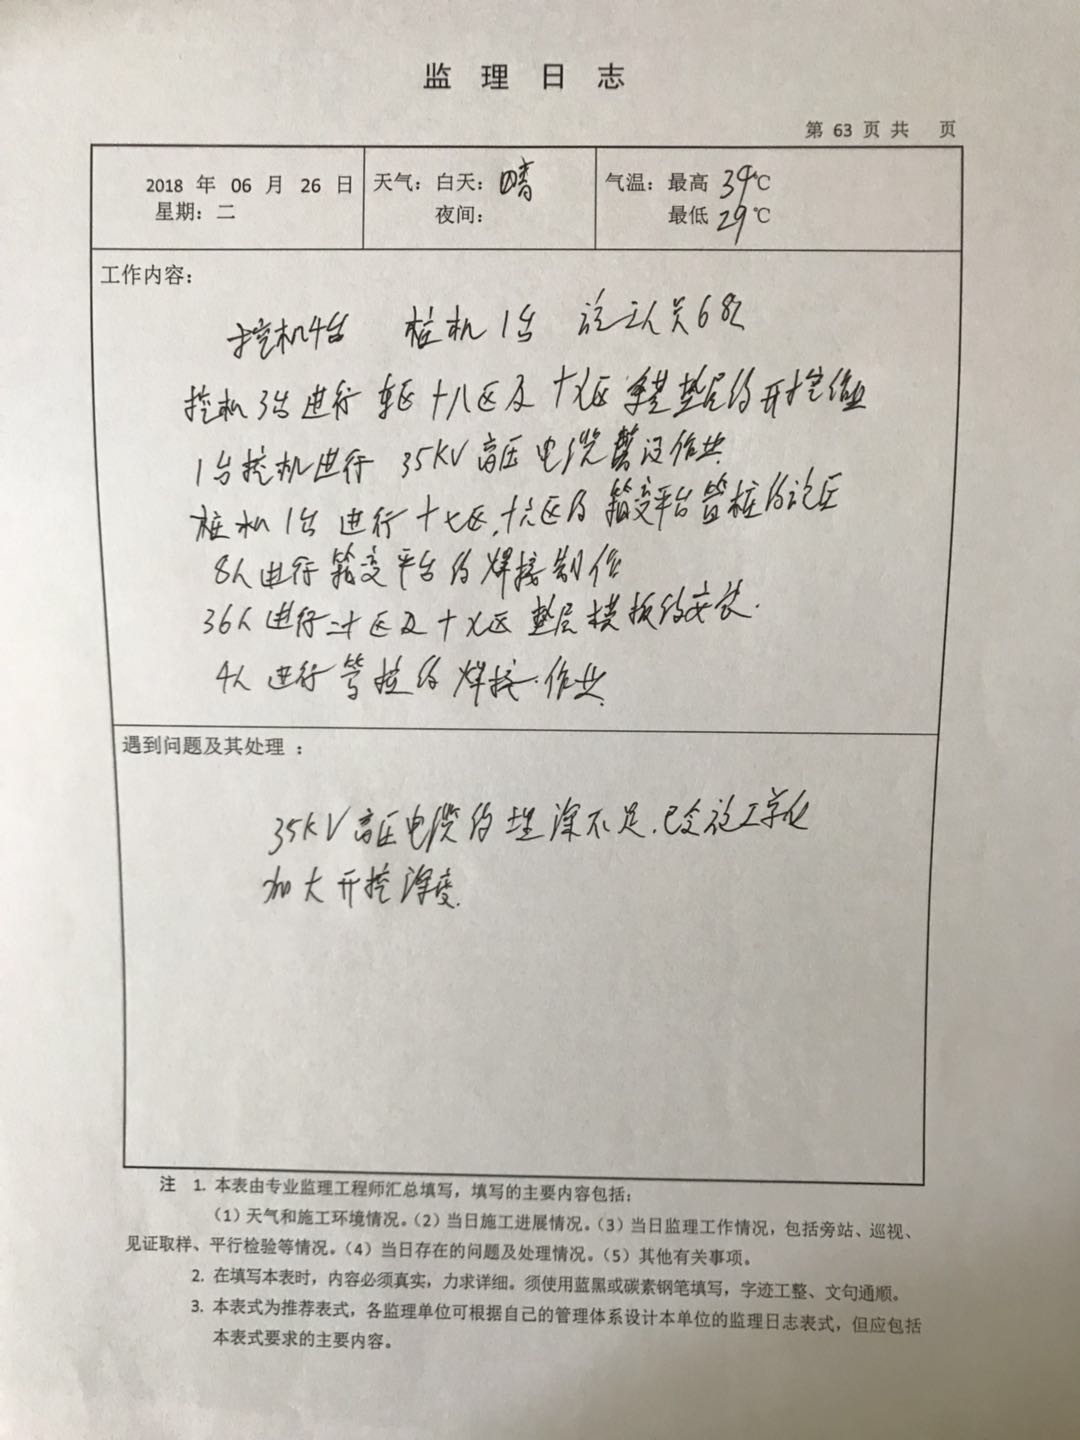 监理日志
第 63 页 共 页
2018 年 06 月 26 日 天气：白天：晴 气温：最高 39℃
星期：二 夜间： 最低 29℃
工作内容：
挖机4台 桩机1台 施工人员6
挖机3台进行 十八区及十 区 垫层的开挖作业
1台挖机进行 35KV高压电缆 设作业
桩机1台进行十七区、十六区及箱变平台管桩的施压
8人进行箱变平台的焊接制作
36人进行二十区及十 区垫层模板的安装.
4人进行 的焊接作业
遇到问题及其处理 ：
35KV高压电缆的埋深不足.已令施工单位
加大开挖深度.
注 1. 本表由专业监理工程师汇总填写，填写的主要内容包括：
（1）天气和施工环境情况。（2）当日施工进展情况。（3）当日监理工作情况，包括旁站、巡视、
见证取样、平行检验等情况。（4）当日存在的问题及处理情况。（5）其他有关事项。
2. 在填写本表时，内容必须真实，力求详细。须使用蓝黑或碳素钢笔填写，字迹工整、文句通顺。
3. 本表式为推荐表式，各监理单位可根据自己的管理体系设计本单位的监理日志表式，但应包括
本表式要求的主要内容。